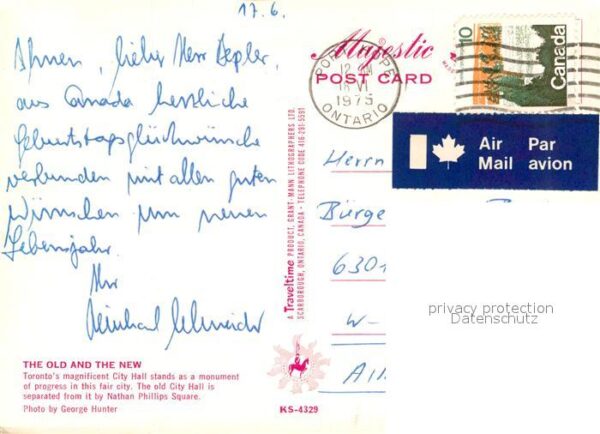 17.6.
Ihnen, lieber Herr Depler,
aus Canada herzliche
Geburtstagsglückwünsche
verbunden mit allen guten
Wünschen zum neuen
Lebensjahr.
Ihr
Reinhard Schneider
THE OLD AND THE NEW
Toronto's magnificent City Hall stands as a monument
of progress in this fair city. The old City Hall is
separated from it by Nathan Phillips Square.
Photo by George Hunter
A Traveltime PRODUCT, GRANT-MANN LITHOGRAPHERS LTD.
SCARBOROUGH, ONTARIO, CANADA - TELEPHONE CODE 416-291-5591
KS-4329
Majestic
POST CARD
PORT HOPE
1975
ONTARIO
10
Canada
Air Par
Mail avion
Herrn
Bürge
6301
W-
All
privacy protection
Datenschutz